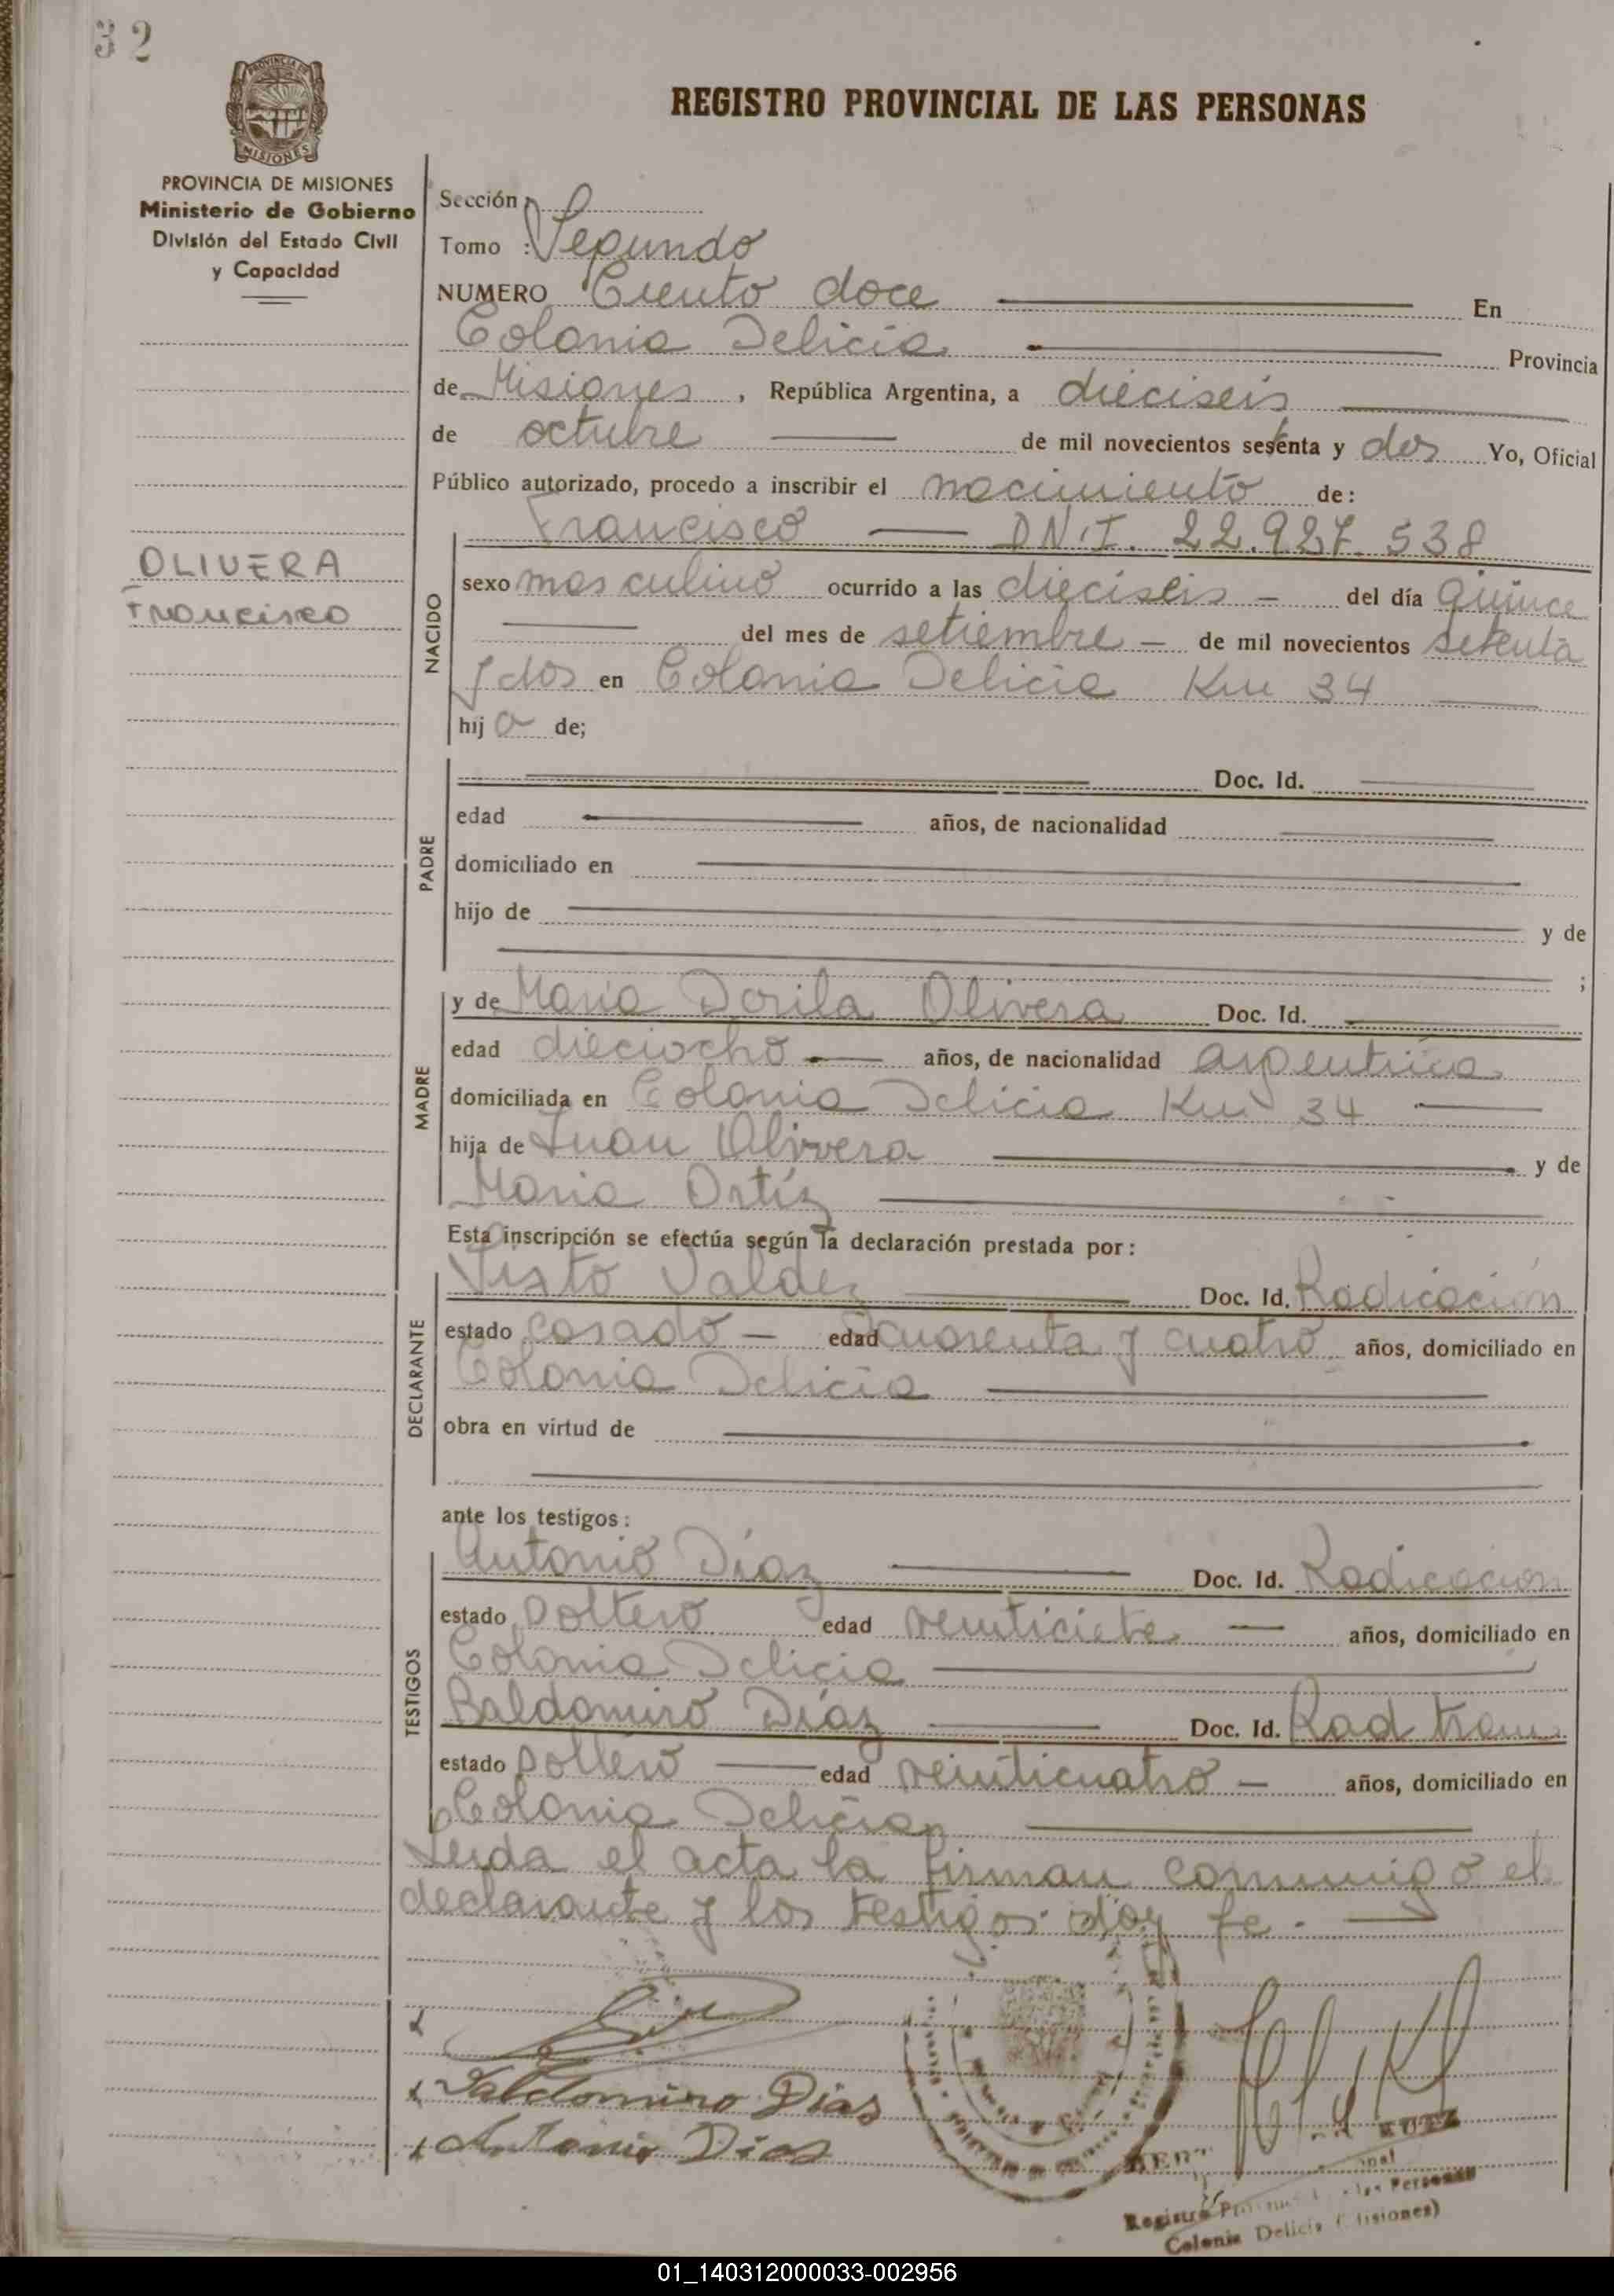 32
PROVINCIA DE
MISIONES
PROVINCIA DE MISIONES
Ministerio de Gobierno
División del Estado Civil
y Capacidad
REGISTRO PROVINCIAL DE LAS PERSONAS
Sección
Tomo : Segundo
NUMERO Ciento doce En
Colonia Delicia Provincia
de Misiones, República Argentina, a dieciseis
de octubre de mil novecientos sesenta y dos Yo, Oficial
Público autorizado, procedo a inscribir el nacimiento de:
Francisco D.N.I. 22.927.538
OLIVERA
Francisco
NACIDO
sexo masculino ocurrido a las dieciseis - del día quince
del mes de setiembre - de mil novecientos setenta
y dos en Colonia Delicia Km 34
hij o de;
PADRE
Doc. Id.
edad años, de nacionalidad
domiciliado en
hijo de y de
;
MADRE
y de Maria Dorila Olivera Doc. Id.
edad dieciocho años, de nacionalidad argentina
domiciliada en Colonia Delicia Km 34
hija de Juan Olivera y de
Maria Ortíz
Esta inscripción se efectúa según la declaración prestada por:
DECLARANTE
Sixto Valdez Doc. Id. Radicación
estado casado - edad cuarenta y cuatro años, domiciliado en
Colonia Delicia
obra en virtud de
ante los testigos:
TESTIGOS
Antonio Díaz Doc. Id. Radicacion
estado soltero edad veinticiete años, domiciliado en
Colonia Delicia
Baldomiro Díaz Doc. Id. Rad tram
estado soltero edad veinticuatro - años, domiciliado en
Colonia Delicia
Leida el acta la firman conmigo el
declarante y los testigos doy fe.
Valdomiro Dias
Antonio Dias
KUTZ
Registro Personas
Colonia Delicia (Misiones)
01_140312000033-002956